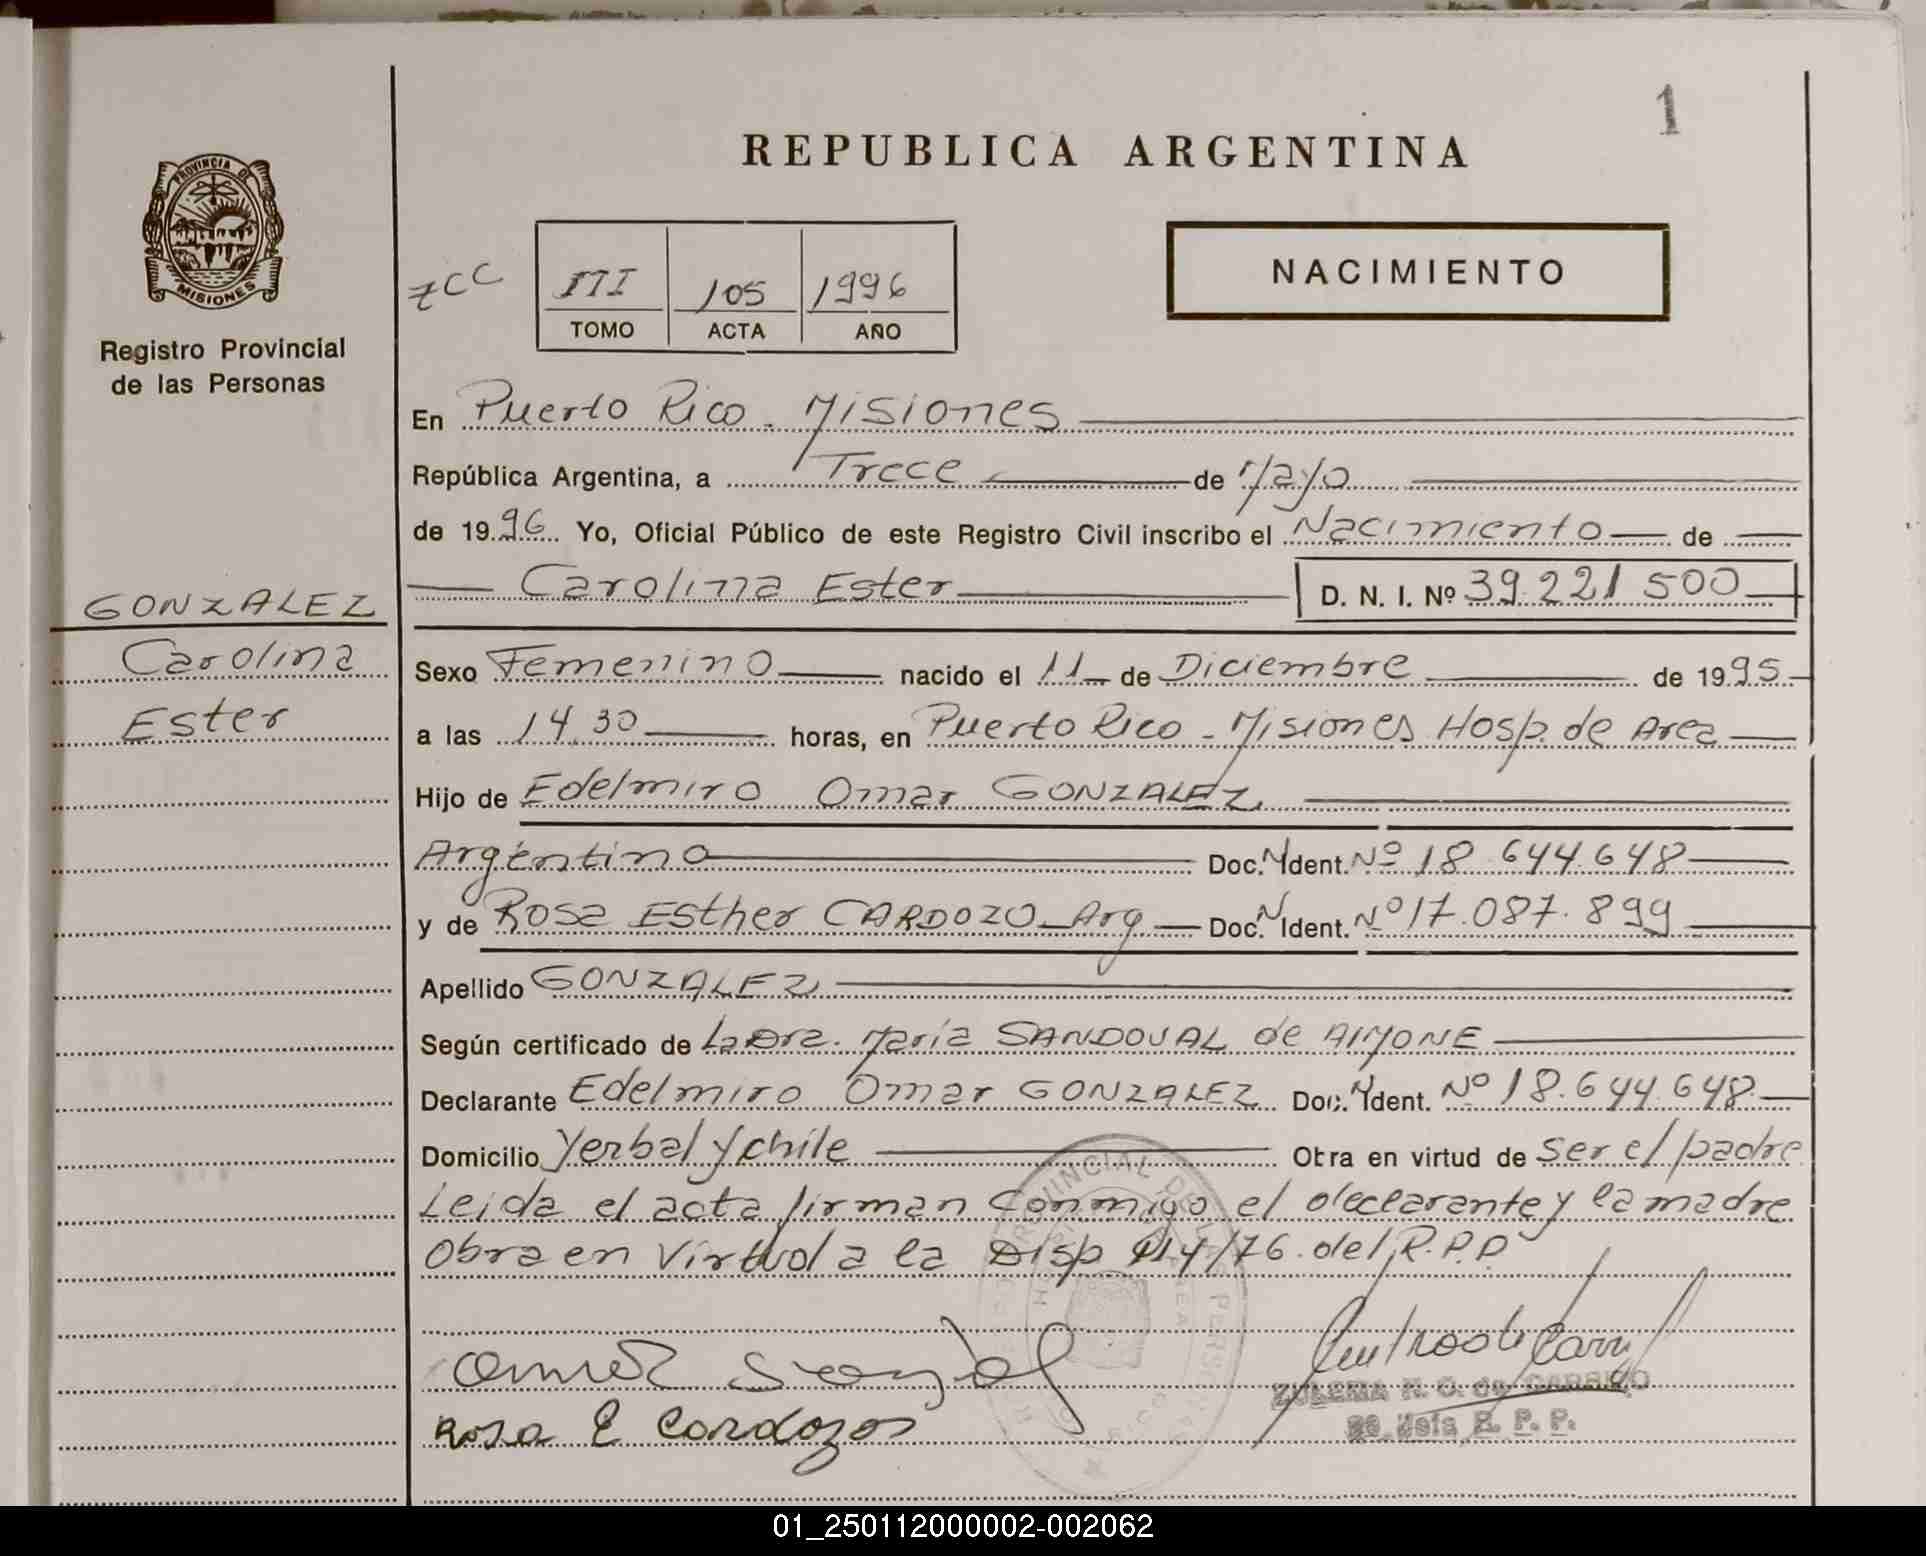 1
REPUBLICA ARGENTINA
PROVINCIA DE
MISIONES
Registro Provincial
de las Personas
zcc
III 105 1996
TOMO ACTA AÑO
NACIMIENTO
En Puerto Rico - Misiones
República Argentina, a Trece de Mayo
de 1996 Yo, Oficial Público de este Registro Civil inscribo el Nacimiento de
GONZALEZ
Carolina
Ester
Carolina Ester D. N. I. Nº 39.221 500
Sexo Femenino nacido el 11 de Diciembre de 1995
a las 14.30 horas, en Puerto Rico - Misiones Hosp. de Area
Hijo de Edelmiro Omar GONZALEZ
Argentino Doc. N Ident. Nº 18.644.648
y de Rosa Esther CARDOZO - Arg Doc. N Ident. Nº 17.087.899
Apellido GONZALEZ
Según certificado de La Dra. María SANDOVAL de AIMONE
Declarante Edelmiro Omar GONZALEZ Doc. N Ident. Nº 18.644.648
Domicilio Yerbal y chile Obra en virtud de ser el padre
Leida el acta firman conmigo el declarante y la madre
Obra en virtud a la Disp 114/76 del R.P.P
Rosa E Cardozo
ZULEMA N. O. de CARRIZO
Jefa R. P. P.
01_250112000002-002062